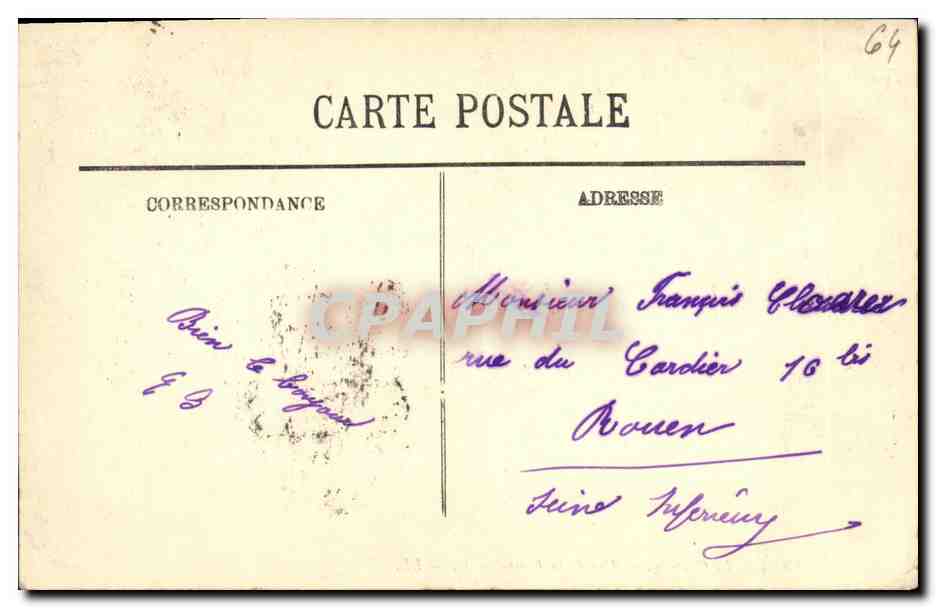 64
CARTE POSTALE
CORRESPONDANCE
ADRESSE
Bien le bonjour
G B
Monsieur François
rue du Cordier 16 bis
Rouen
Seine Inférieure
CPAPHIL